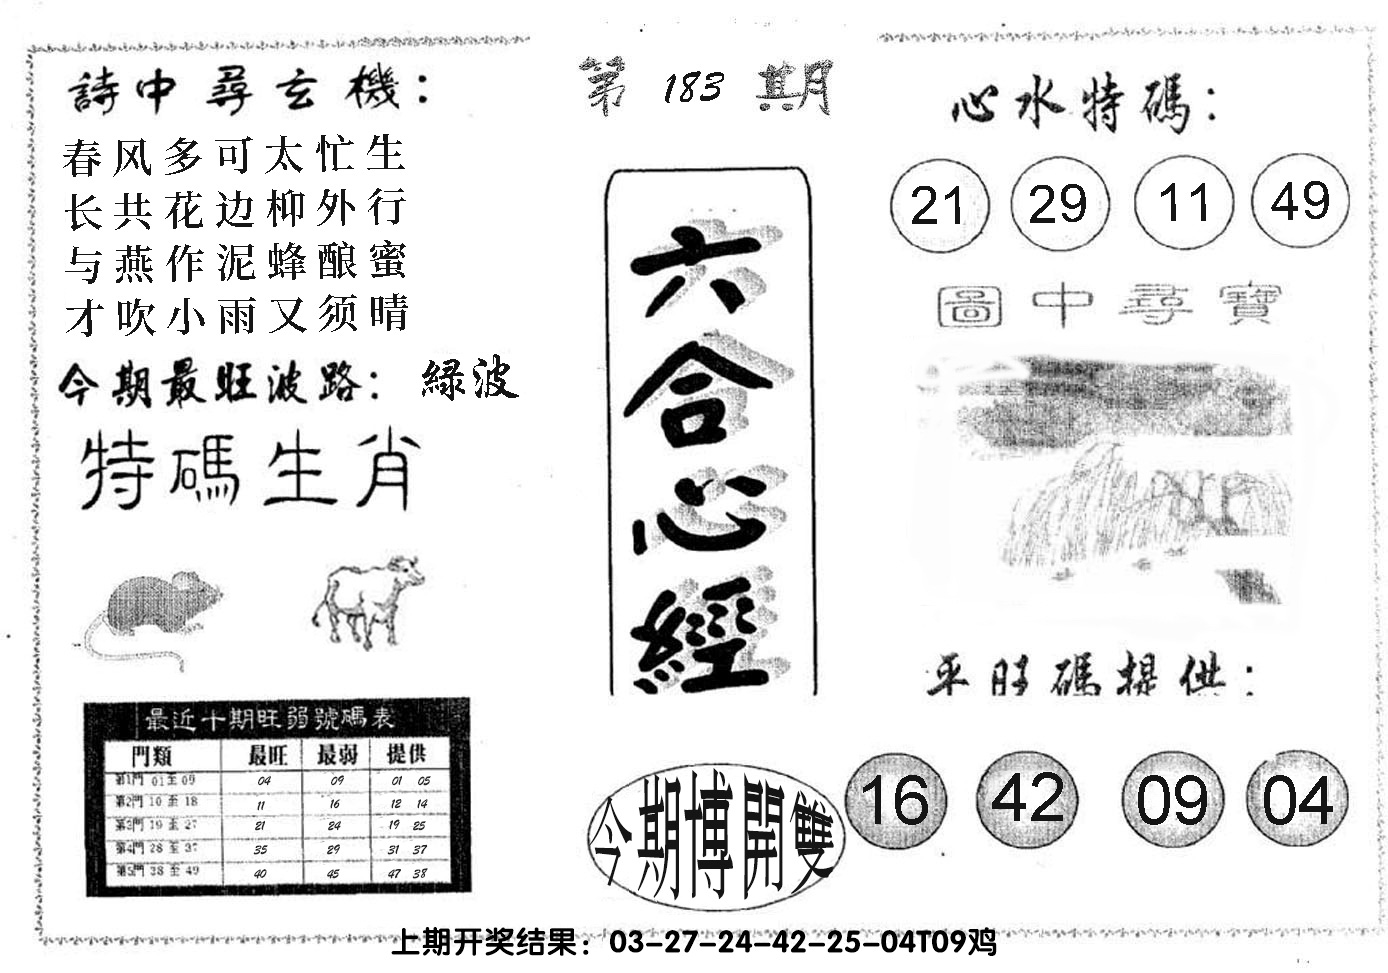 詩中尋玄機：
春风多可太忙生
长共花边柳外行
与燕作泥蜂酿蜜
才吹小雨又须晴
今期最旺波路：綠波
特碼生肖
最近十期旺弱號碼表
門類 最旺 最弱 提供
第1門 01至09 04 09 01 05
第2門 10至18 11 16 12 14
第3門 19至27 21 24 19 25
第4門 28至37 35 29 31 37
第5門 38至49 40 45 47 38
第183期
六合心經
今期博開雙
心水特碼：
21 29 11 49
圖中尋寶
平旺碼提供：
16 42 09 04
上期开奖结果：03-27-24-42-25-04T09鸡